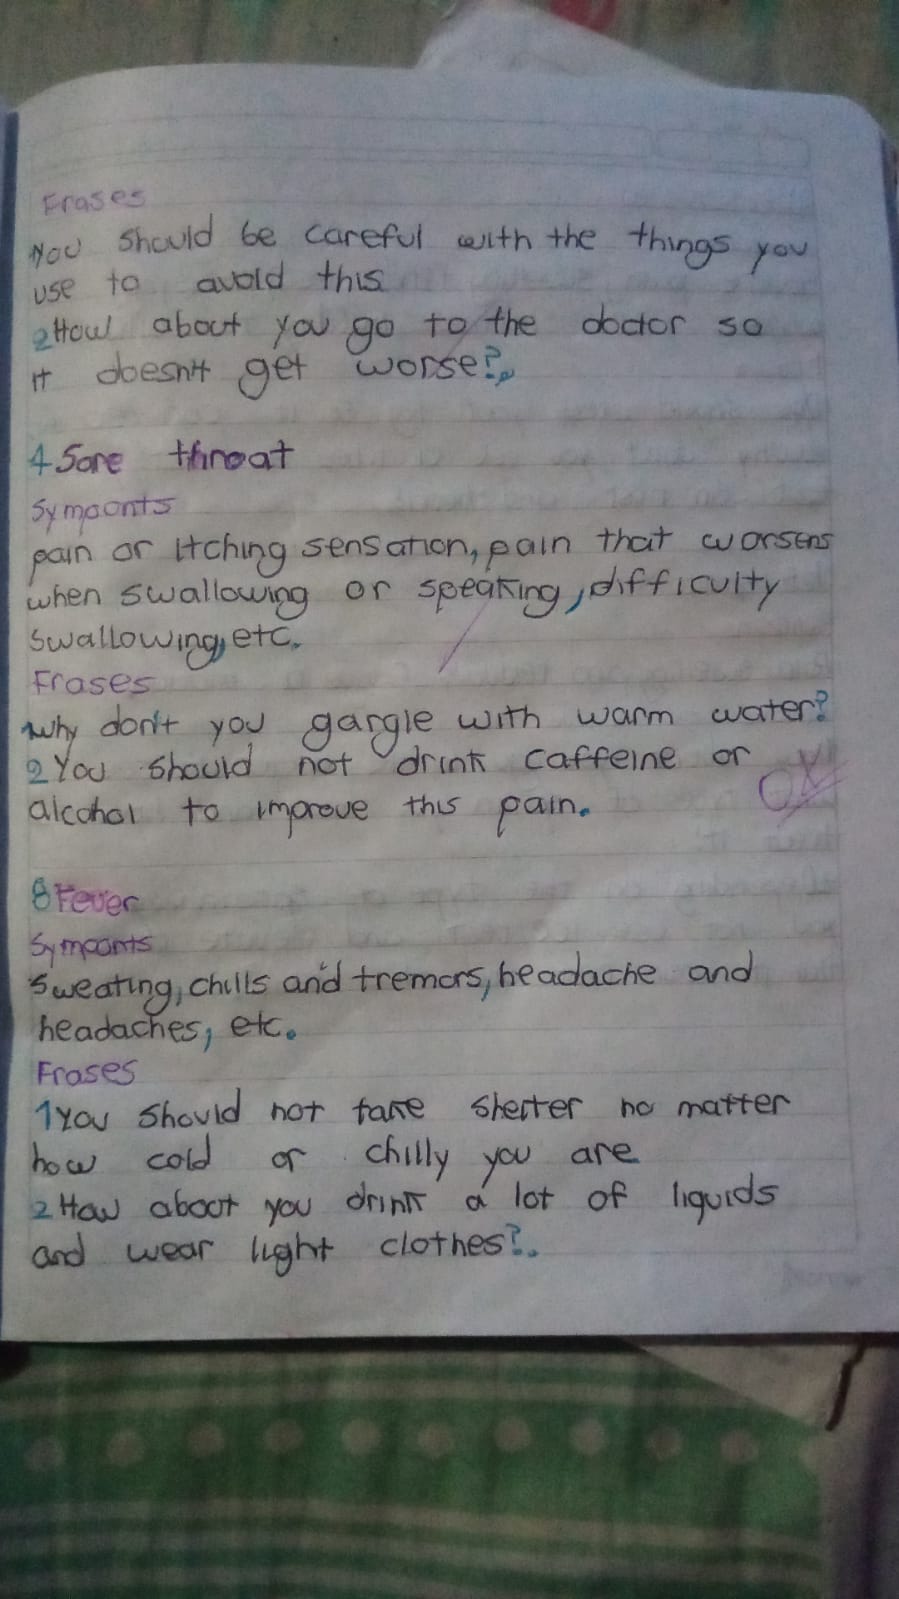 Frases
You should be careful with the things you
use to avoid this
2 How about you go to the doctor so
it doesn't get worse?.
4 Sore throat
Sympoonts
pain or itching sensation, pain that worsens
when swallowing or speaking, difficulty
swallowing, etc.
Frases
1 why don't you gargle with warm water?
2 You should not drink caffeine or
alcohol to improve this pain.
OK
8 Fever
Sympoonts
Sweating, chills and tremors, headache and
headaches, etc.
Frases
1 You should not take shelter no matter
how cold or chilly you are
2 How about you drink a lot of liquids
and wear light clothes?.